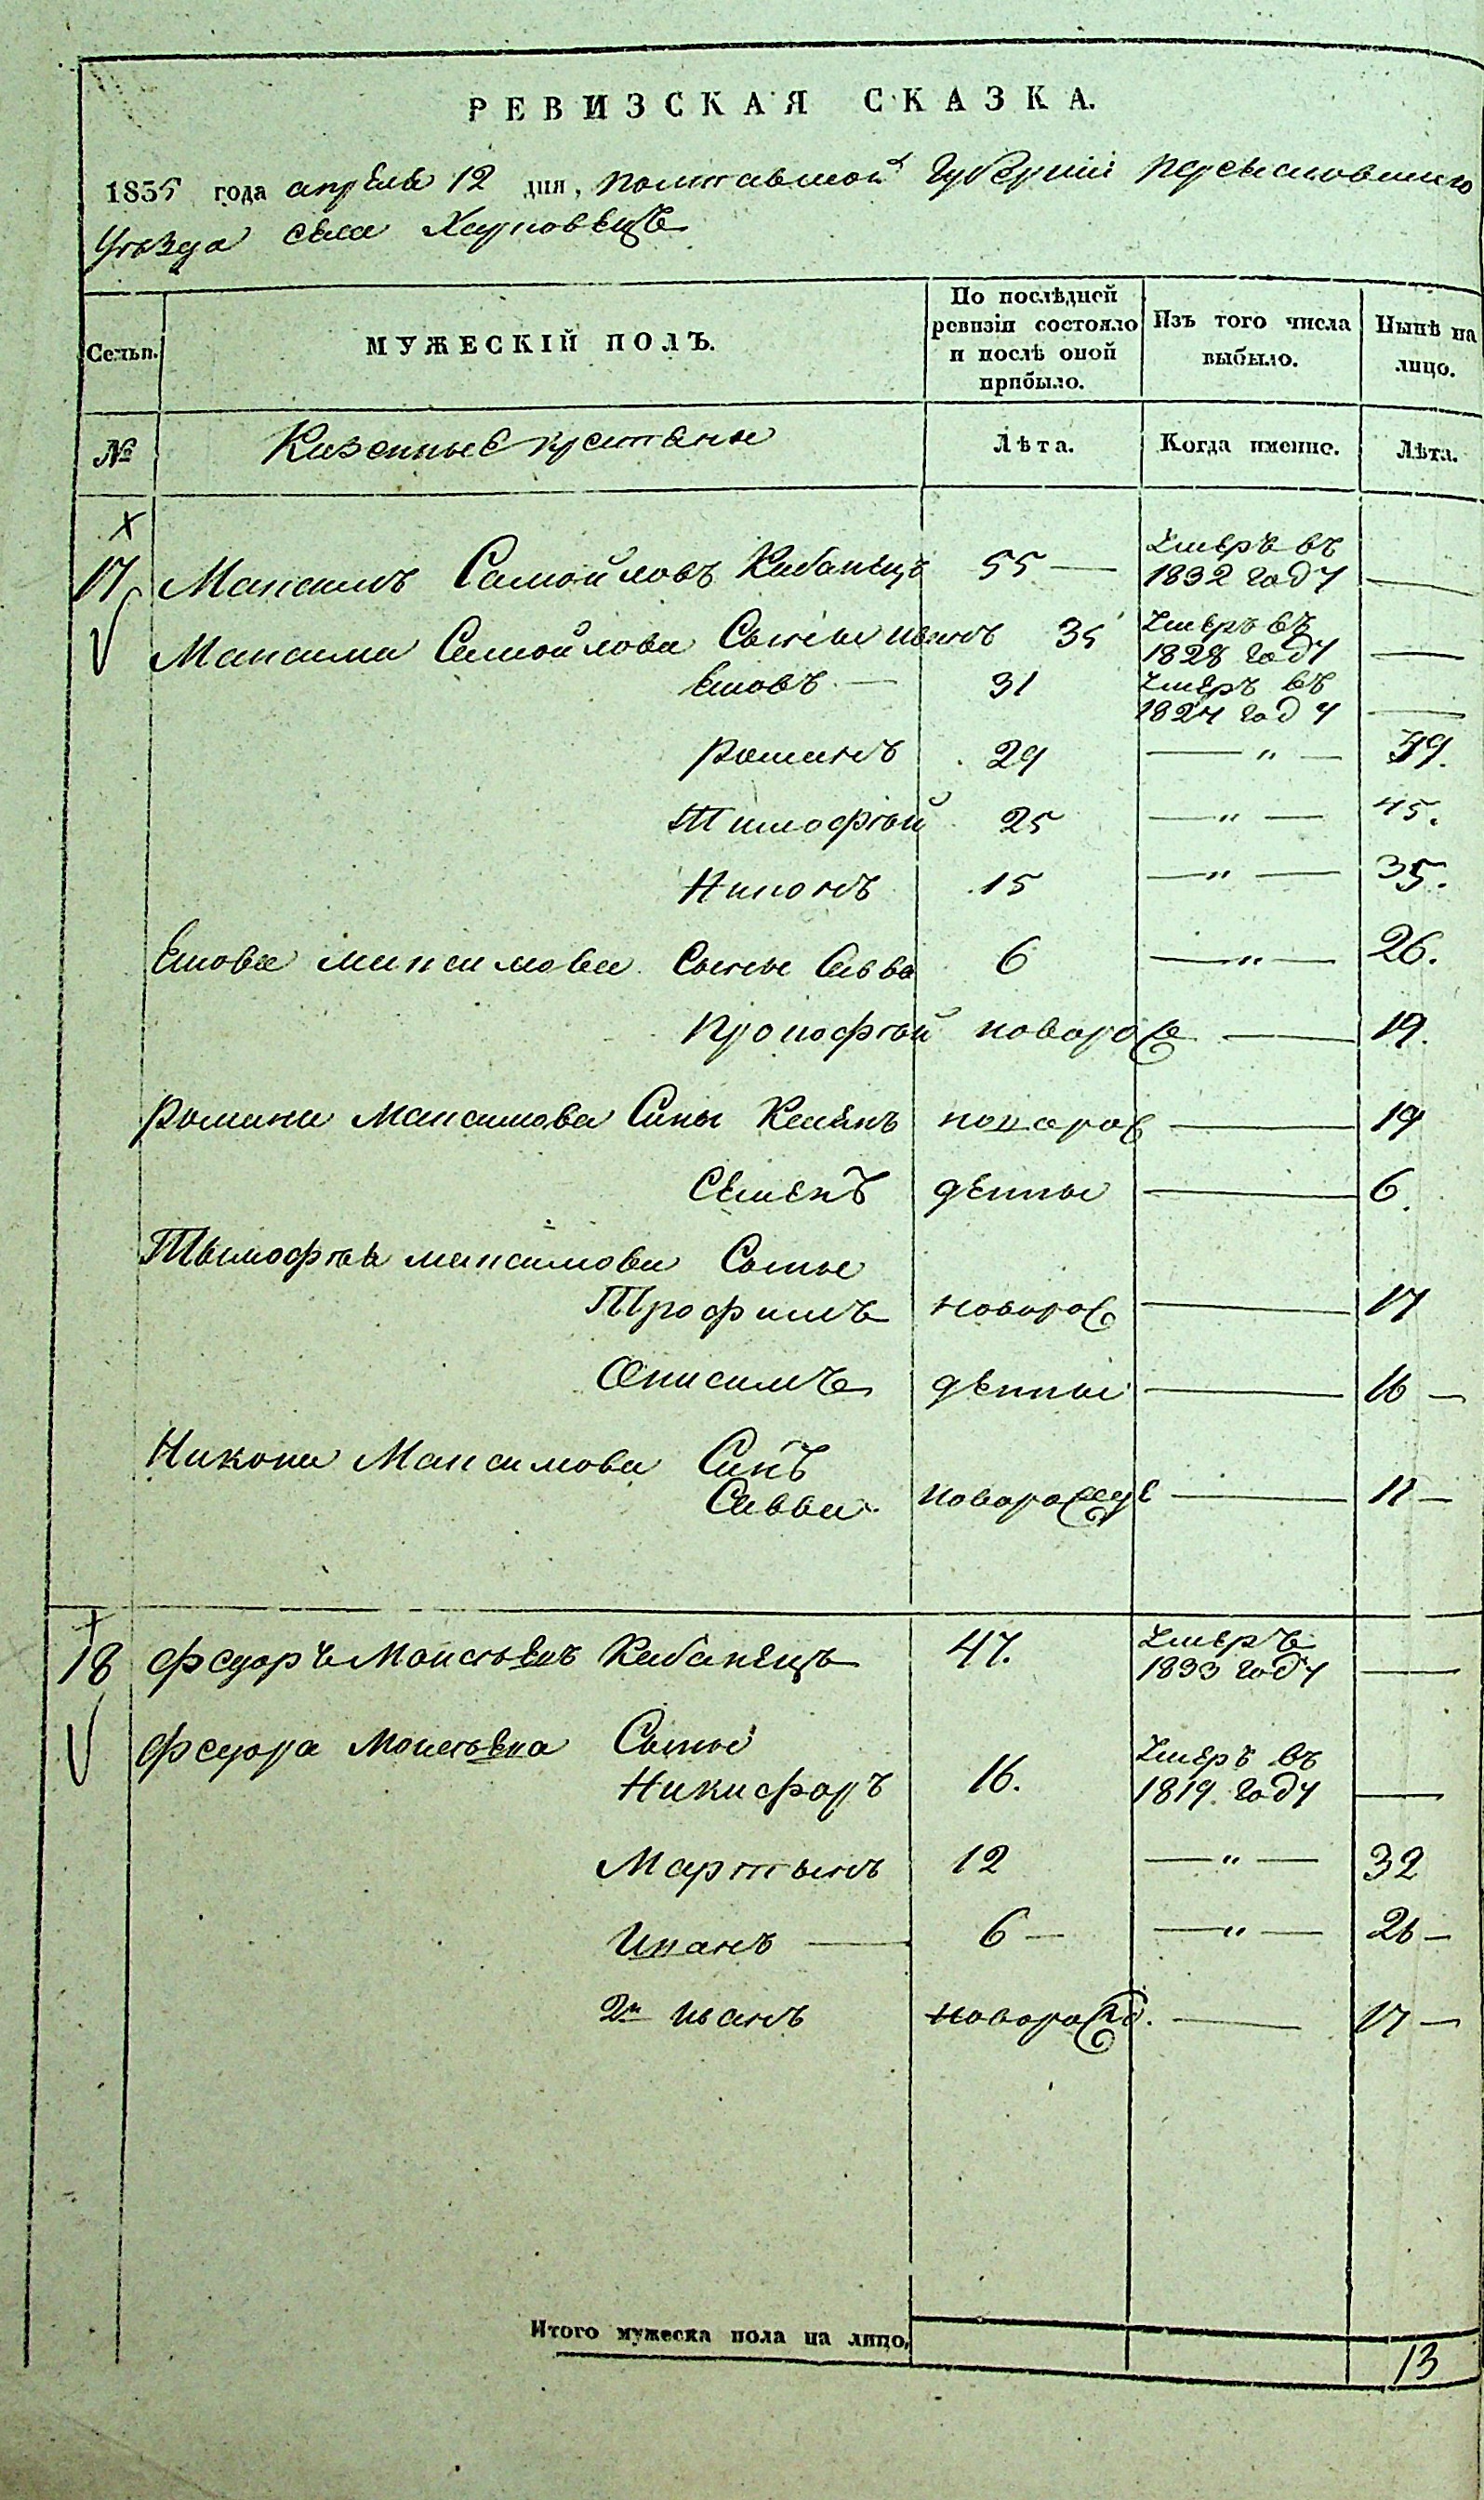 РЕВИЗСКАЯ СКАЗКА.
1835 года апреля 12 дня, Полтавской Губернии Переяславского
Уезда села Харковецъ
Сельп. МУЖЕСКІЙ ПОЛЪ. По послѣдней ревизіи состояло и послѣ оной прибыло. Изъ того числа выбыло. Нынѣ на лицо.
№ Казенные крестяне Лѣта. Когда именно. Лѣта.
17 Максимъ Самойловъ Кабанецъ 55 — Умеръ въ 1832 году —
Максима Самойлова Сыны Иванъ 35 Умеръ въ 1828 году —
Яковъ — 31 Умеръ въ 1824 году —
Романъ 29 — " — 49.
Тимофѣй 25 — " — 45.
Никонъ 15 — " — 35.
Якова Максимова Сыны Савва 6 — " — 26.
Прокофѣй новорож — 19.
Романа Максимова Сины новорож — 19
Семенъ денные — 6.
Тымофѣя Максимова Сыны
Трофимъ новорож — 17
Онисимъ денные — 16 —
Никона Максимова Синъ
Савва новорожде — 11 —
18 Федоръ Моисѣевъ Кабанецъ 47. Умеръ 1833 году —
Федора Моисѣева Сыны
Никифоръ 16. Умеръ въ 1819 году —
Мартынъ 12 — " — 32
Иванъ — 6 — — " — 26 —
2й Иванъ новорожд. — 17 —
Итого мужеска пола на лицо, 13